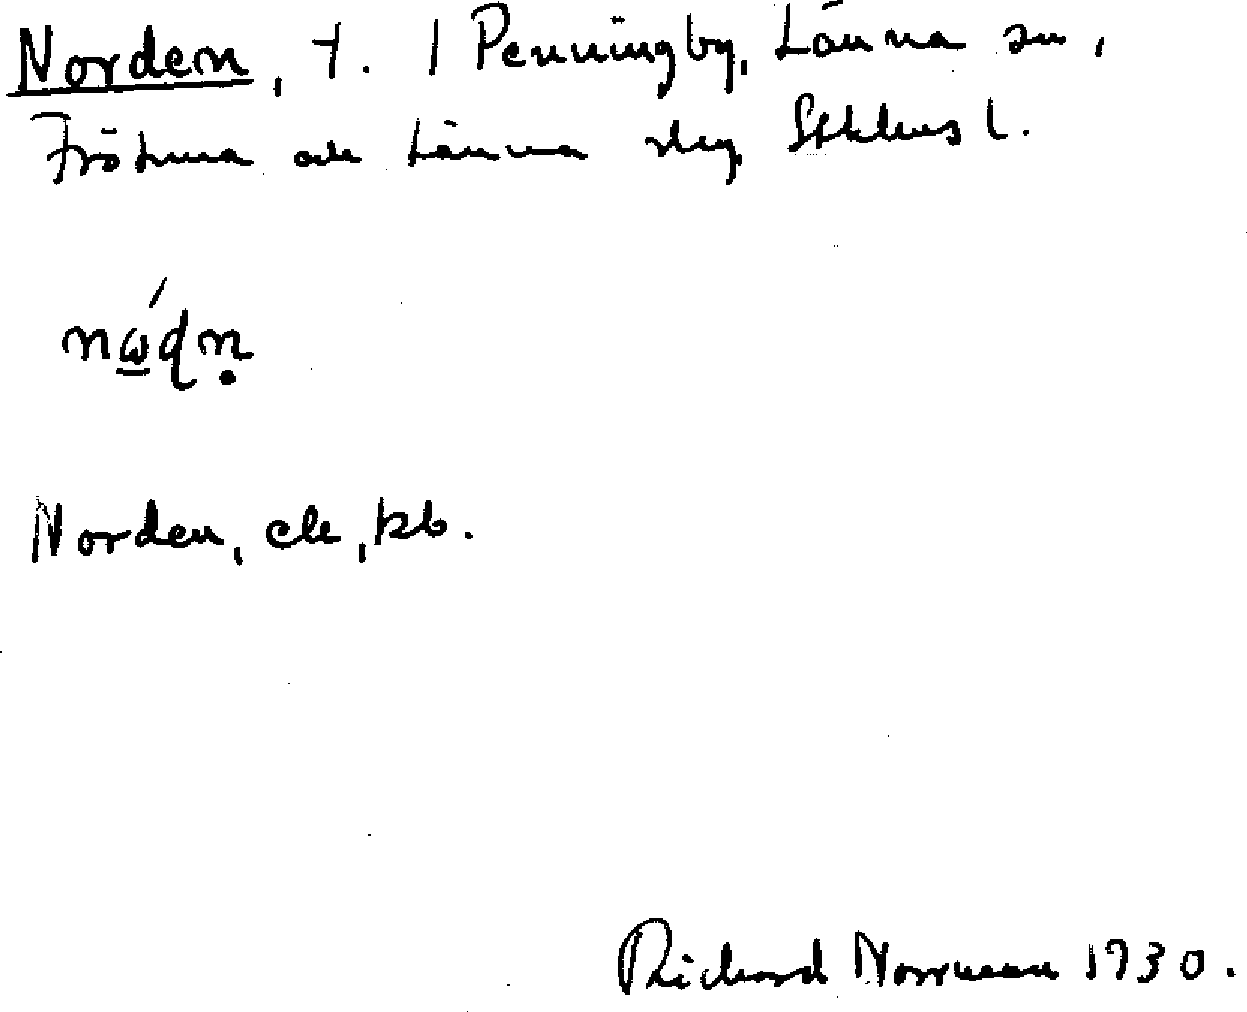 Norden, t. 1 Penningby, Länna sn,
Frötuna och Länna slg, Sthlms l.
nώ̱dṇ
Norden, ek, kb.
Richard Norrman 1930.